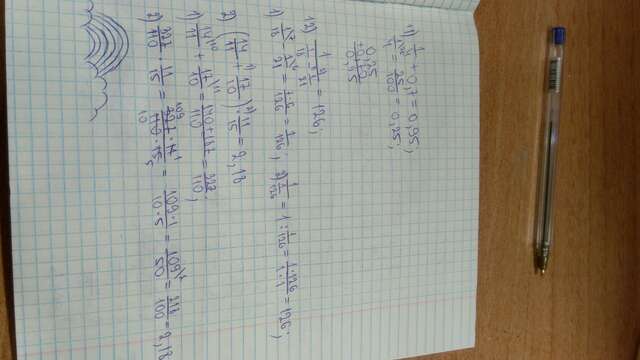 1) 1/4 + 0,7 = 0,95;
1/4 = 25/100 = 0,25;
0,25
+0,70
0,95
12) 1/(1/18 - 1/21) = 126;
1) 1/18 - 1/21 = 7-6/126 = 1/126; 2) 1/(1/126) = 1 : 1/126 = 1·126/1·1 = 126;
2) (14/11 + 17/10) · 11/15 = 2,18
1) 14/11 + 17/10 = 140+187/110 = 327/110;
2) 327/110 · 11/15 = 327·11/110·15 = 109·1/10·5 = 109/50 = 218/100 = 2,18